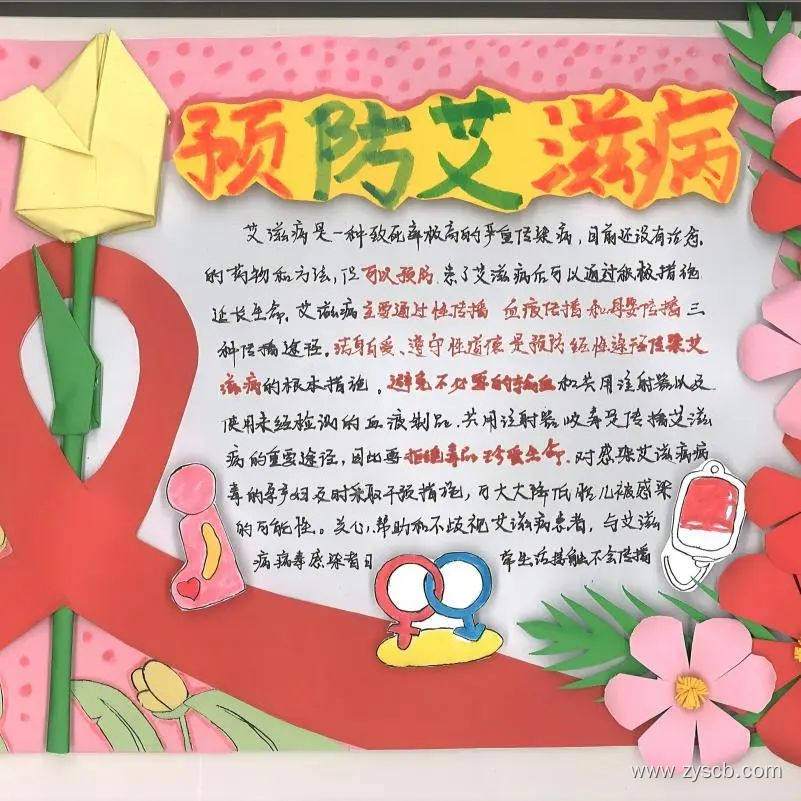 预防艾滋病
艾滋病是一种致死率极高的严重传染病,目前还没有治愈
的药物和方法,但可以预防.患了艾滋病后可以通过积极措施
延长生命.艾滋病主要通过性传播 血液传播和母婴传播三
种传播途径。洁身自爱、遵守性道德是预防经性途径传染艾
滋病的根本措施。避免不必要的输血和共用注射器以及
使用未经检测的血液制品.共用注射器吸毒是传播艾滋
病的重要途径,因此要拒绝毒品 珍爱生命.对感染艾滋病病
毒的孕产妇及时采取干预措施,可大大降低胎儿被感染
的可能性。关心、帮助和不歧视艾滋病患者,与艾滋
病病毒感染者日 常生活接触不会传播
www.zyscb.com